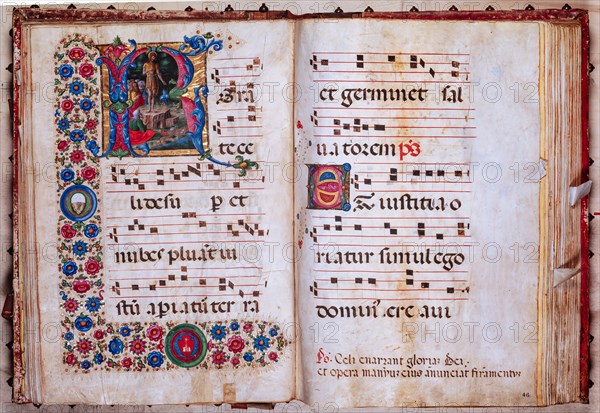 Rora
te ce
li desu ꝑ et
nubes pluāt iu
stū aꝑiatur̄ ter ra
et germinet sal
uatorem p̄s
Et iustitia o
riatur simul ego
dominꝰ cre aui
Ps. Celi enarrant gloriaꝫ Dei,
et opera manuuꝫ eius anunciat firamentuꝫ
46.
PHOTO 12